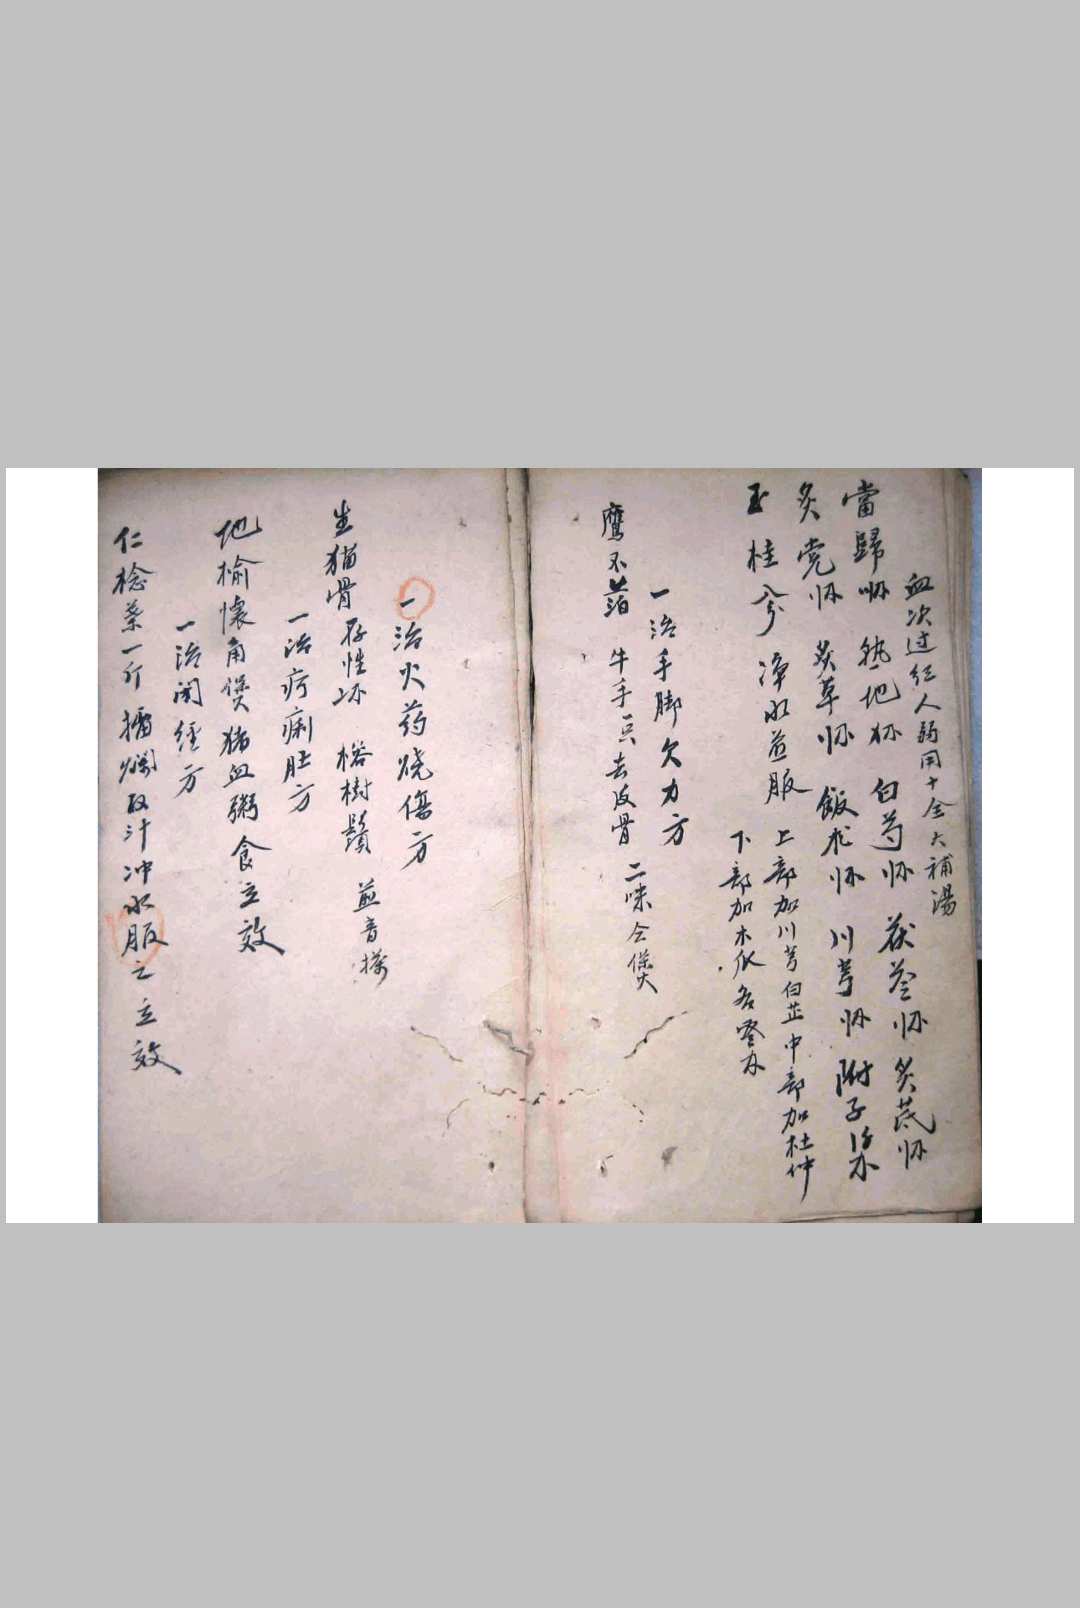 血次过经人弱用十全大補湯
當歸 熟地 白芍 茯苓 炙芪
炙党 炙草 川芎 附子
玉桂 净水煎服
上部加川芎白芷中部加杜仲
下部加木瓜
一治手脚欠力方
鹰不萡 牛手 去皮骨 二味仝煲
一治火药烧傷方
生猫骨存性 榕樹鬚 煎膏搽
一治疴痢肚方
地榆懷角煲猪血粥食立效
一治闭經方
仁棯葉一斤擂爛取汁冲水服之立效